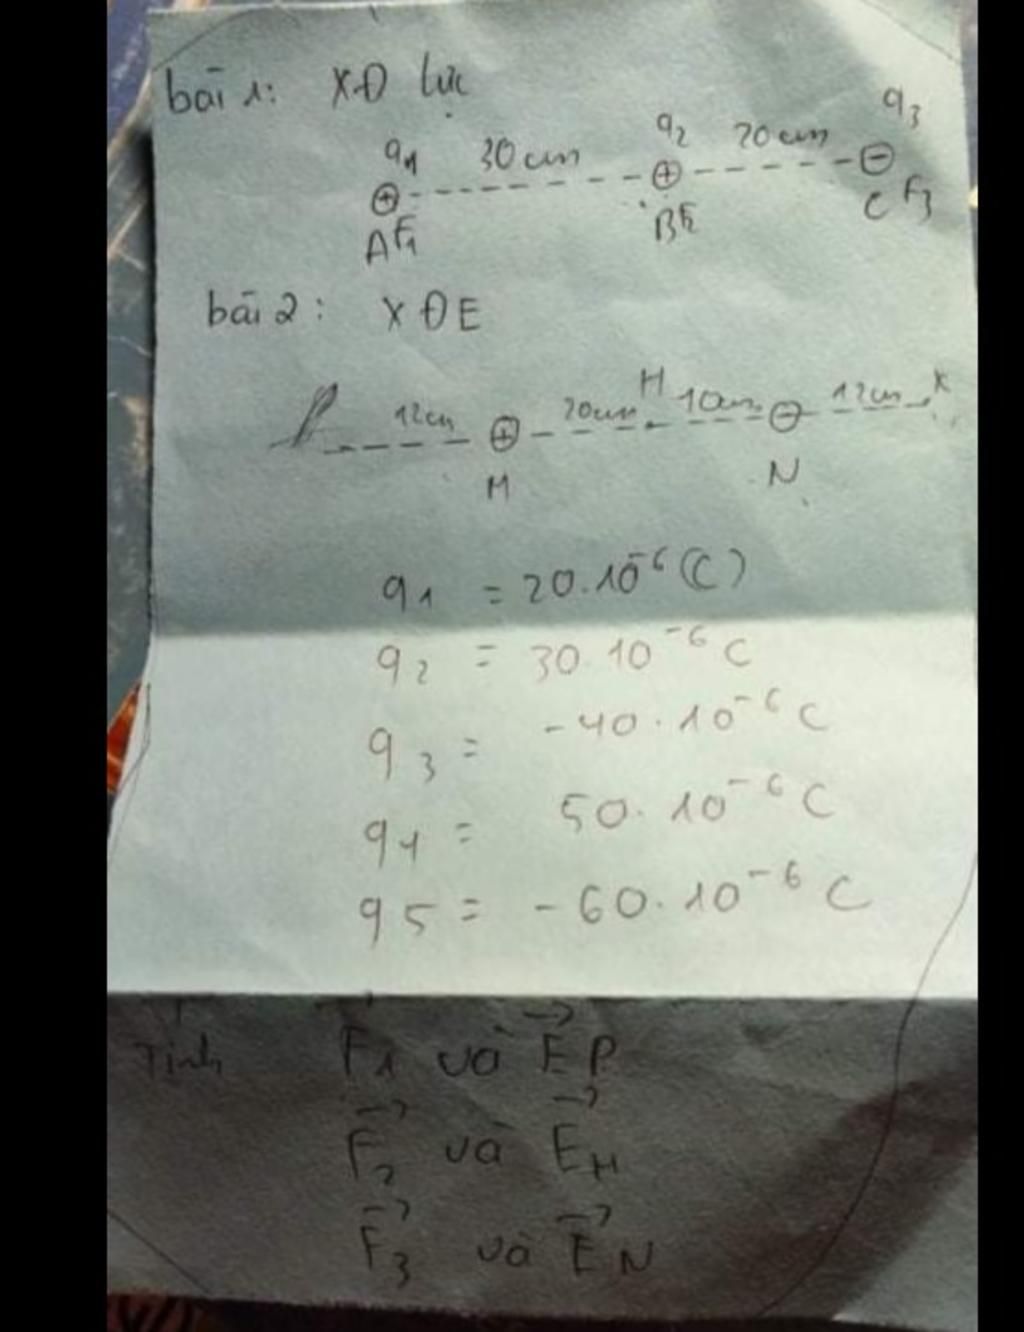 bài 1: XĐ lực
q1 30cm q2 20cm q3
A F1 B F2 C F3
bài 2: XĐE
P 12cm 20cm H 10cm 12cm K
M N
q1 = 20.10^-6 (C)
q2 = 30.10^-6 C
q3 = -40.10^-6 C
q4 = 50.10^-6 C
q5 = -60.10^-6 C
Tính F1 và EP
F2 và EH
F3 và EN